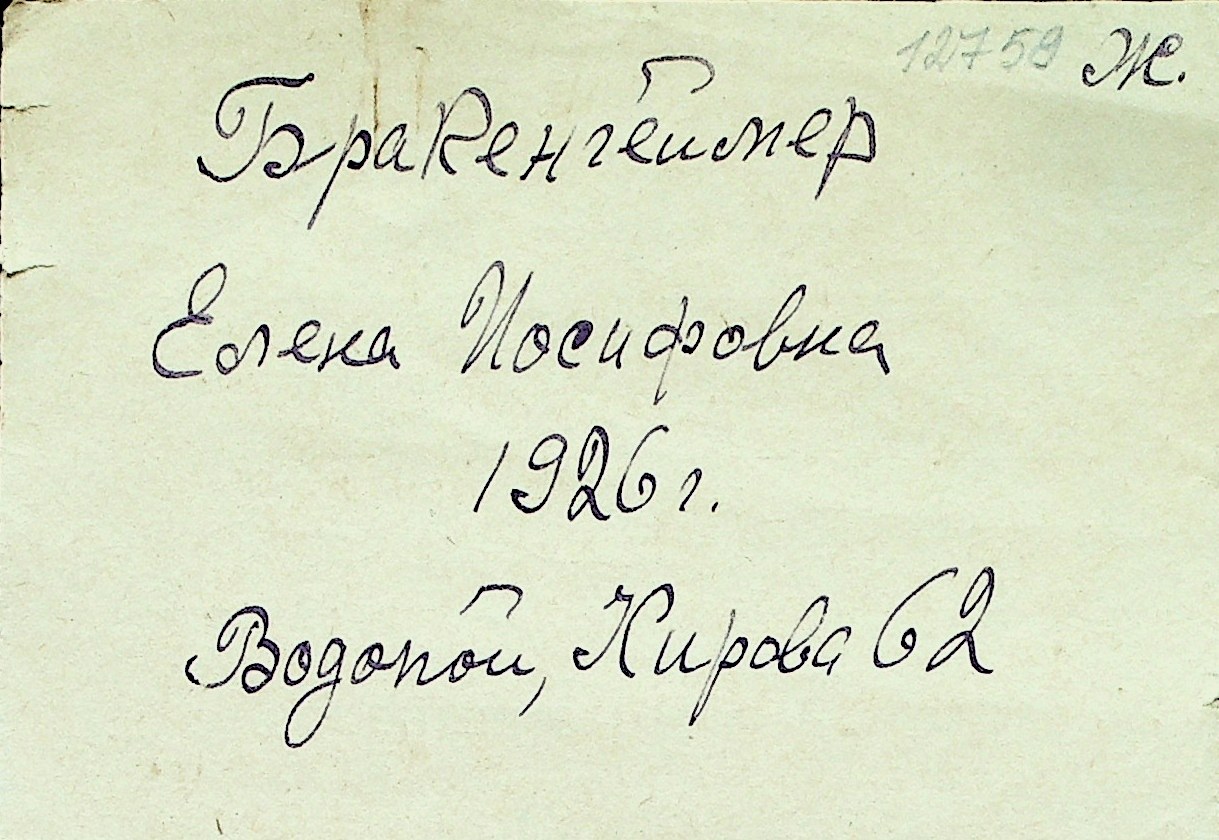 12759 Ж.
Бракенгеймер
Елена Иосифовна
1926 г.
Водопой, Кирова 62